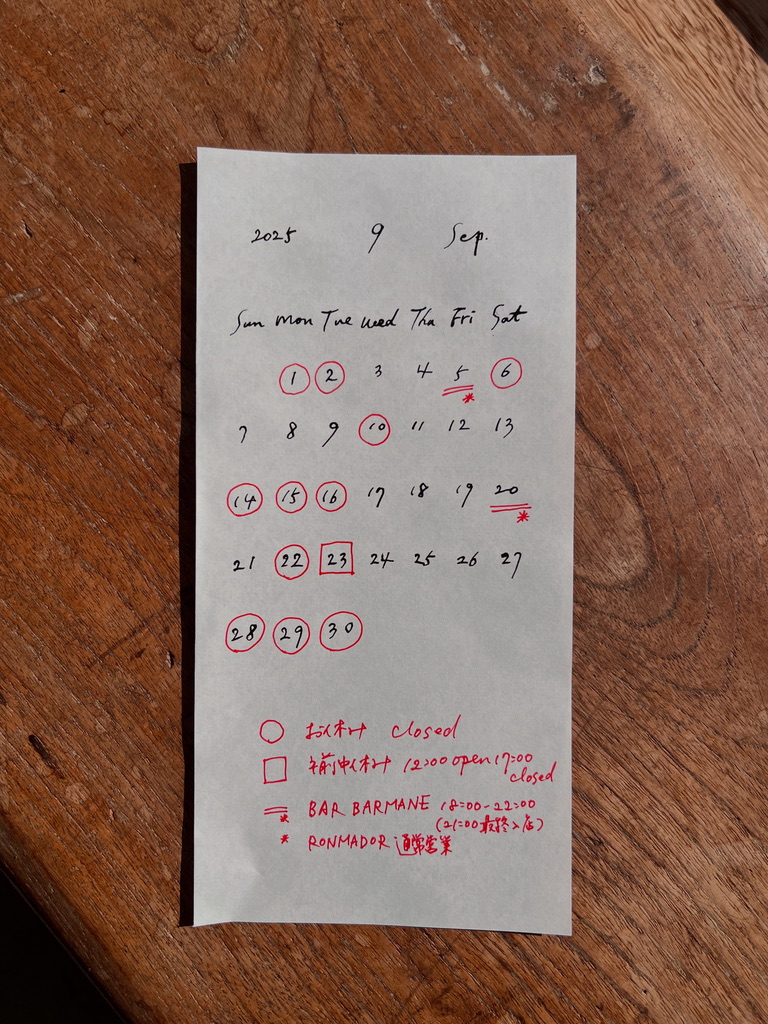 2025 9 Sep.
Sun mon Tue wed Thu Fri Sat
1 2 3 4 5 6
*
7 8 9 10 11 12 13
14 15 16 17 18 19 20
*
21 22 23 24 25 26 27
28 29 30
お休み closed
午前中休み 12:00 open 17:00
closed
BAR BARMANE 18:00-22:00
* (21:00 最終入店)
* RONMADOR 通常営業